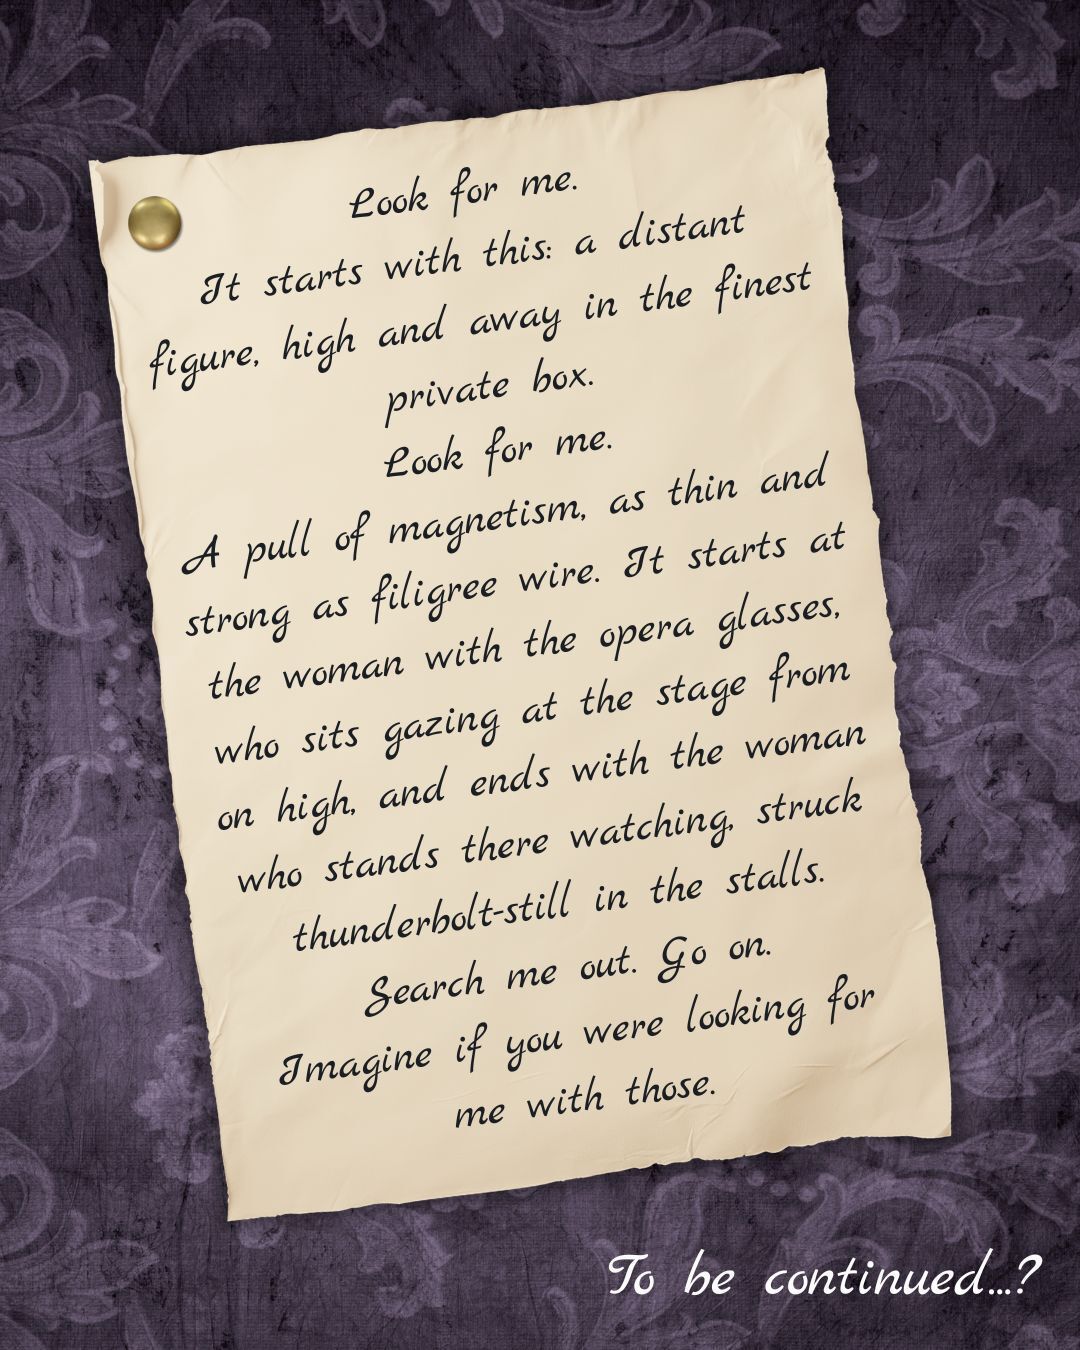 Look for me.
It starts with this: a distant
figure, high and away in the finest
private box.
Look for me.
A pull of magnetism, as thin and
strong as filigree wire. It starts at
the woman with the opera glasses,
who sits gazing at the stage from
on high, and ends with the woman
who stands there watching, struck
thunderbolt-still in the stalls.
Search me out. Go on.
Imagine if you were looking for
me with those.
To be continued...?